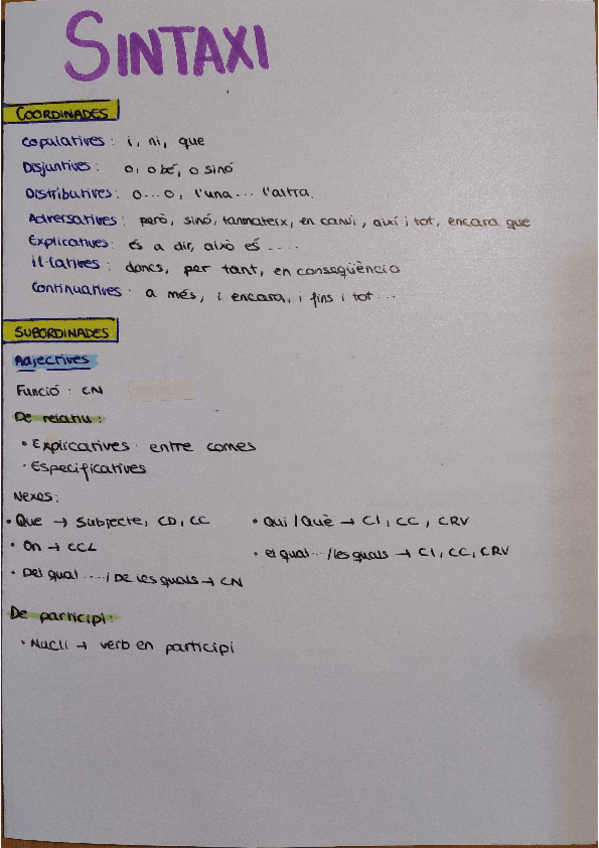 SINTAXI
COORDINADES
Copulatives: i, ni, que
Disjuntives: o, o bé, o sinó
Distributives: o...o, l'una... l'altra.
Adversatives: però, sinó, tanmateix, en canvi, així i tot, encara que
Explicatives: és a dir, això és ....
il·latives: doncs, per tant, en conseqüència
Continuatives: a més, i encara, i fins i tot...
SUBORDINADES
Adjectives
Funció: CN
De relatiu:
• Explicatives: entre comes
• Especificatives
Nexes:
• Que → Subjecte, CD, CC
• Qui/Què → CI, CC, CRV
• On → CCL
• el qual.../les quals → CI, CC, CRV
• Del qual..../De les quals → CN
De participi:
• Nucli → verb en participi